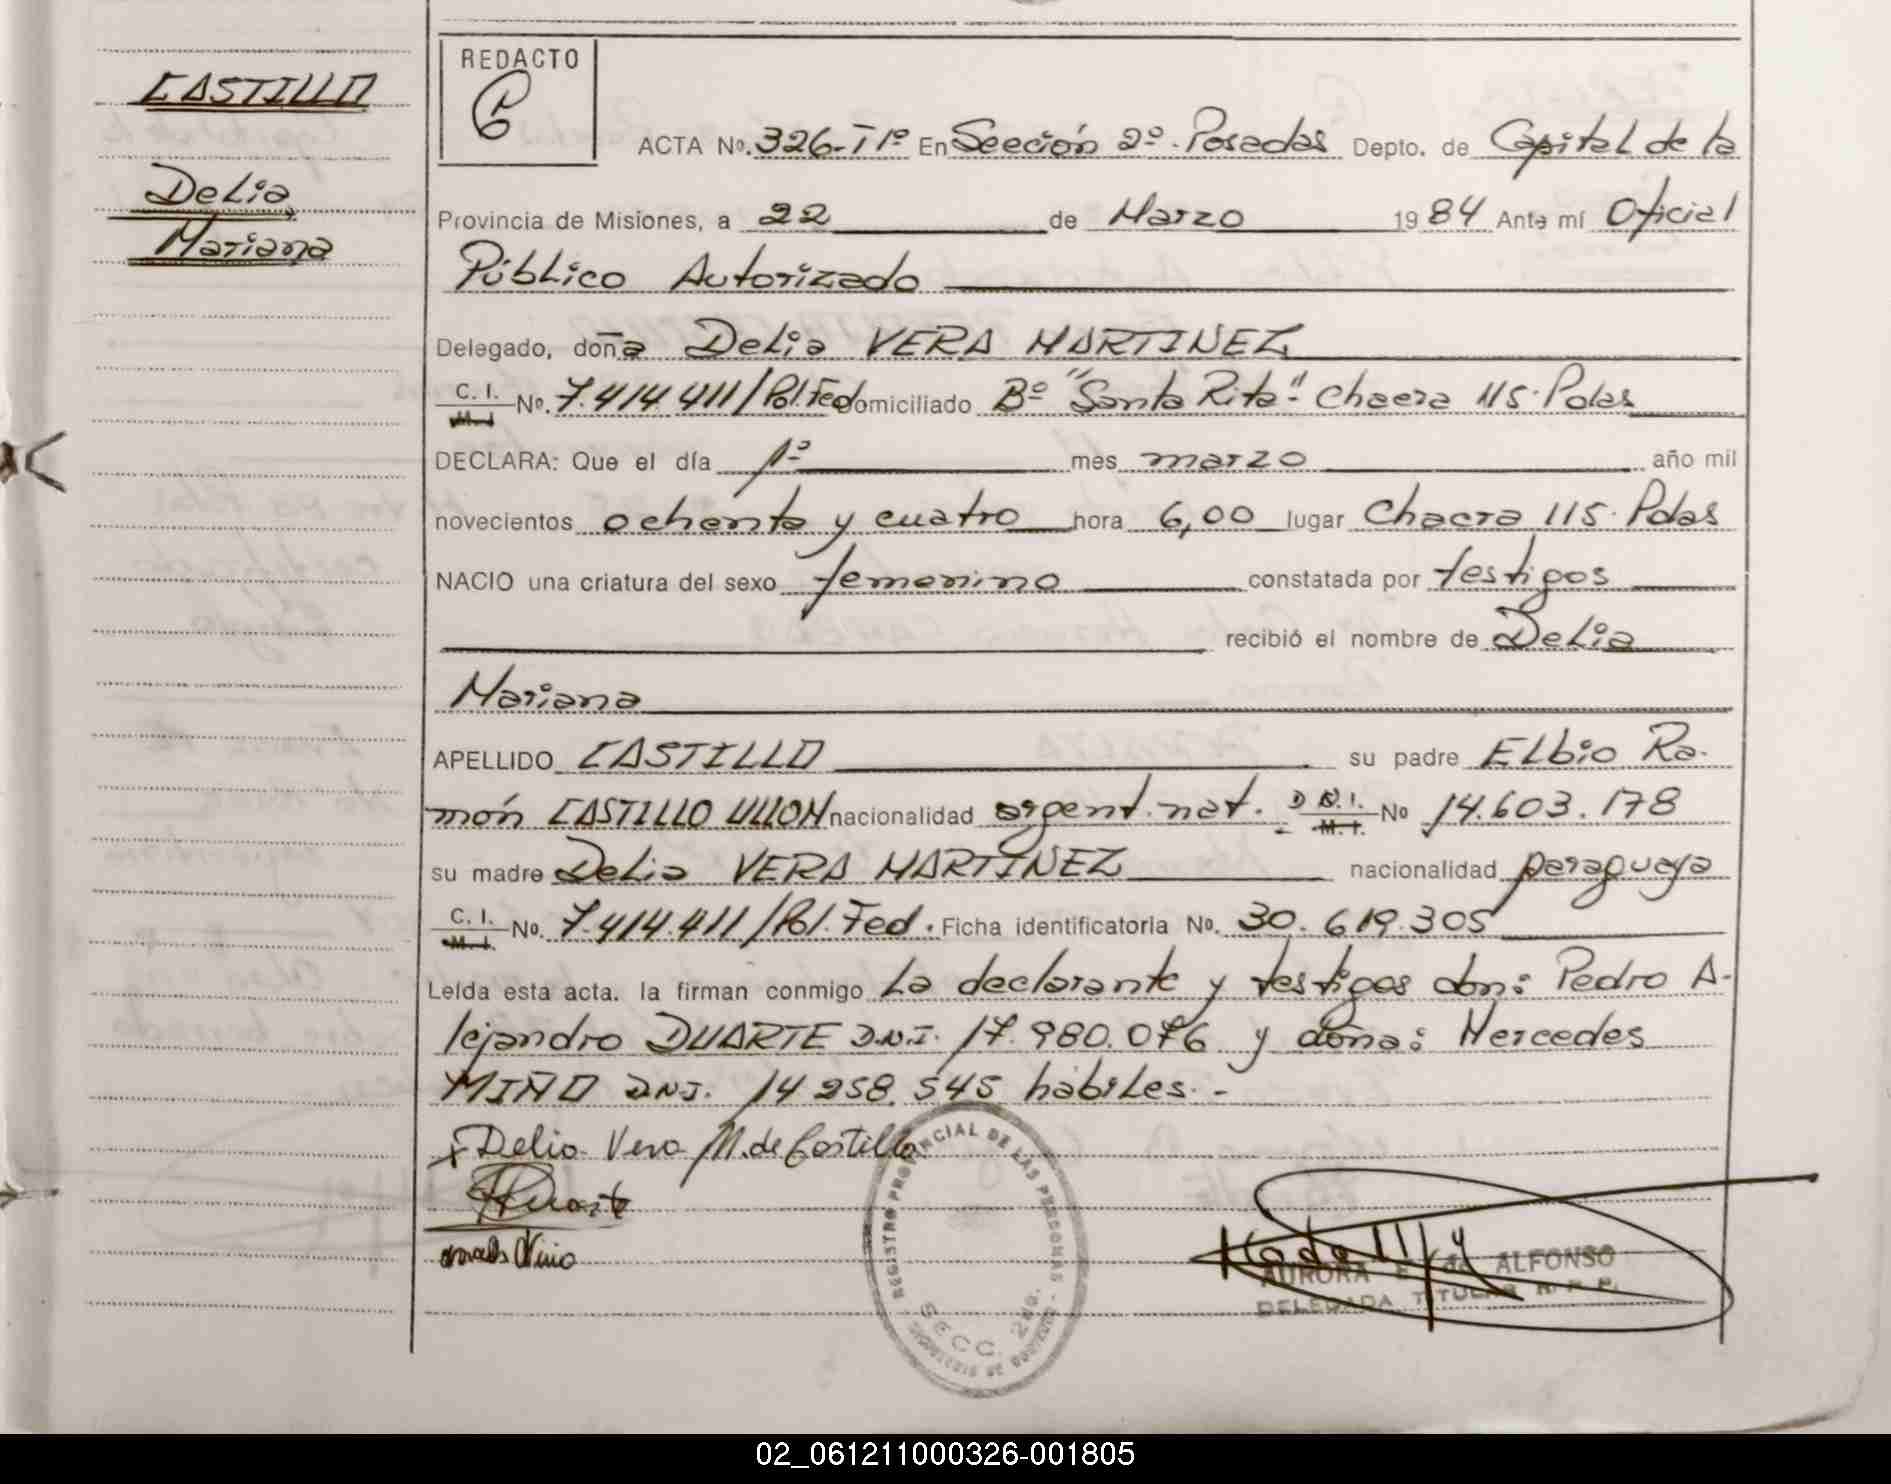 CASTILLO
Delia
Mariana
REDACTO
ACTA No. 326-Tº 1º En Sección 2º. Posadas Depto. de Capital de la
Provincia de Misiones, a 22 de Marzo 1984 Ante mí Oficial
Público Autorizado
Delegado, doña Delia VERA MARTINEZ
C. I. M. I. No. 7.414.411/Pol. Fed domiciliado Bº "Santa Rita" - Chacra 115. Pdas
DECLARA: Que el día 1º mes marzo año mil
novecientos ochenta y cuatro hora 6,00 lugar Chacra 115. Pdas
NACIO una criatura del sexo femenino constatada por testigos
recibió el nombre de Delia
Mariana
APELLIDO CASTILLO su padre Elbio Ra-
món CASTILLO ULLON nacionalidad argent. nat. D N. I. M. I. No 14.603.178
su madre Delia VERA MARTINEZ nacionalidad paraguaya
C. I. M. I. No. 7.414.411/Pol. Fed. Ficha identificatoria No. 30.619.305
Leída esta acta. la firman conmigo la declarante y testigos don: Pedro A-
lejandro DUARTE D.N.I. 17.980.076 y doña: Mercedes
MIÑO D.N.I. 14 258.545 hábiles.-
Delia Vera M. de Castillo
Duarte
Miño
REGISTRO PROVINCIAL DE LAS PERSONAS
SECC. 2da.
AURORA E. de ALFONSO
DELEGADA TITULAR R. P. P.
02_061211000326-001805